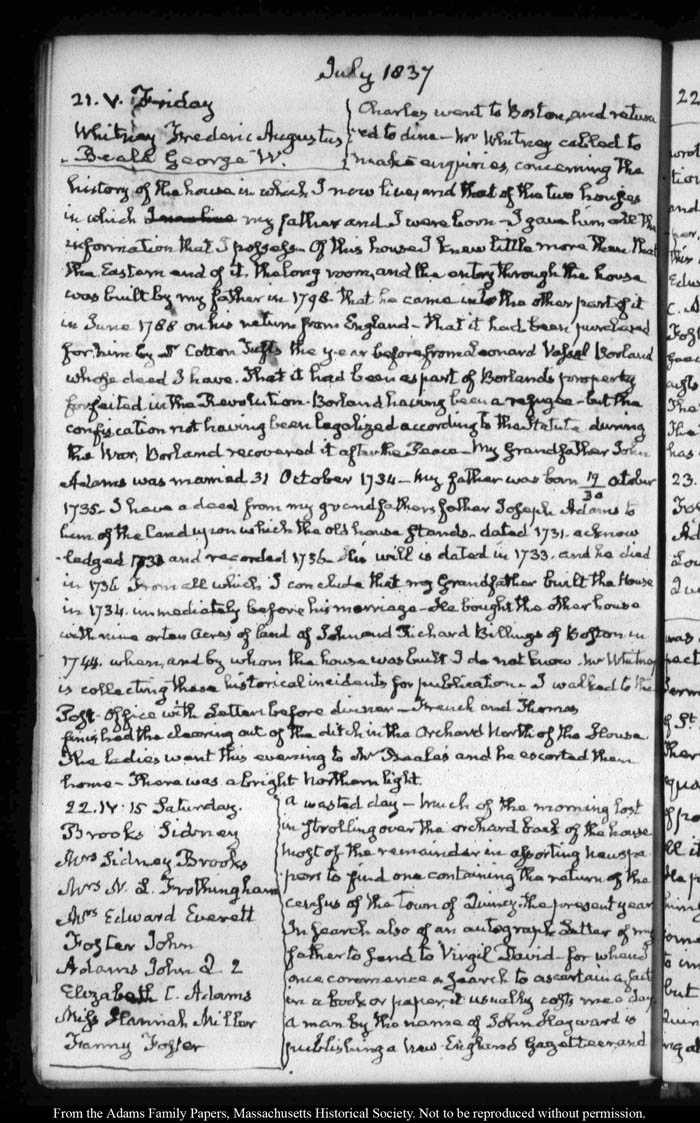 July 1837
21. V. Friday
Whitney Frederic Augustus
Beale George W.
Charles went to Boston, and return
ed to dine — Mr Whitney called to
make enquiries, concerning the
history of the house in which I now live, and that of the two houses
in which my father and I were born — I gave him all the
information that I possess. Of this house I knew little more than that
the Eastern end of it, the long room, and the entry through the house
was built by my father in 1798. that he came into the other part of it
in June 1788 on his return from England — that it had been purchased
for him by Dr Cotton Tufts the year before from Leonard Vassal Borland
whose deed I have. That it had been a part of Borlands property
forfeited in the Revolution. Borland having been a refugee — but the
confiscation not having been legalized according to the Statute during
the War, Borland recovered it after the Peace — My Grandfather John
Adams was married 31 October 1734 — My father was born 19/30 October
1735. I have a deed from my grandfathers father Joseph Adams to
him of the land upon which the old house stands. dated 1731. acknow
ledged 1733 and recorded 1736. His will is dated in 1733. and he died
in 1736 From all which I conclude that my Grandfather built the House
in 1734. immediately before his marriage — He bought the other house
with nine or ten Acres of land of John and Richard Billings of Boston in
1744. when, and by whom the house was built I do not know. Mr Whitney
is collecting these historical incidents for publication. I walked to the
Post-Office with Letters before dinner — French and Thomas
finished the clearing out of the ditch in the Orchard North of the House.
The ladies went this evening to Mr Beale's and he escorted them
home — There was a bright Northern light.
22. IV. 15 Saturday.
Brooks Sidney
Mrs Sidney Brooks
Mrs N. L. Frothingham
Mrs Edward Everett
Foster John
Adams John Q. 2
Elizabeth C. Adams
Miss Hannah Miller
Fanny Foster
A wasted day — Much of the morning lost
in strolling over the orchard back of the house
most of the remainder in assorting newspa
pers to find one containing the return of the
census of the town of Quincy the present year
In search also of an autograph Letter of my
father to send to Virgil David — for when I
once commence a search to ascertain a fact
in a book or paper, it usually costs me a day
A man by the name of John Hayward is
publishing a New-England Gazetteer, and
22
23.
From the Adams Family Papers, Massachusetts Historical Society. Not to be reproduced without permission.